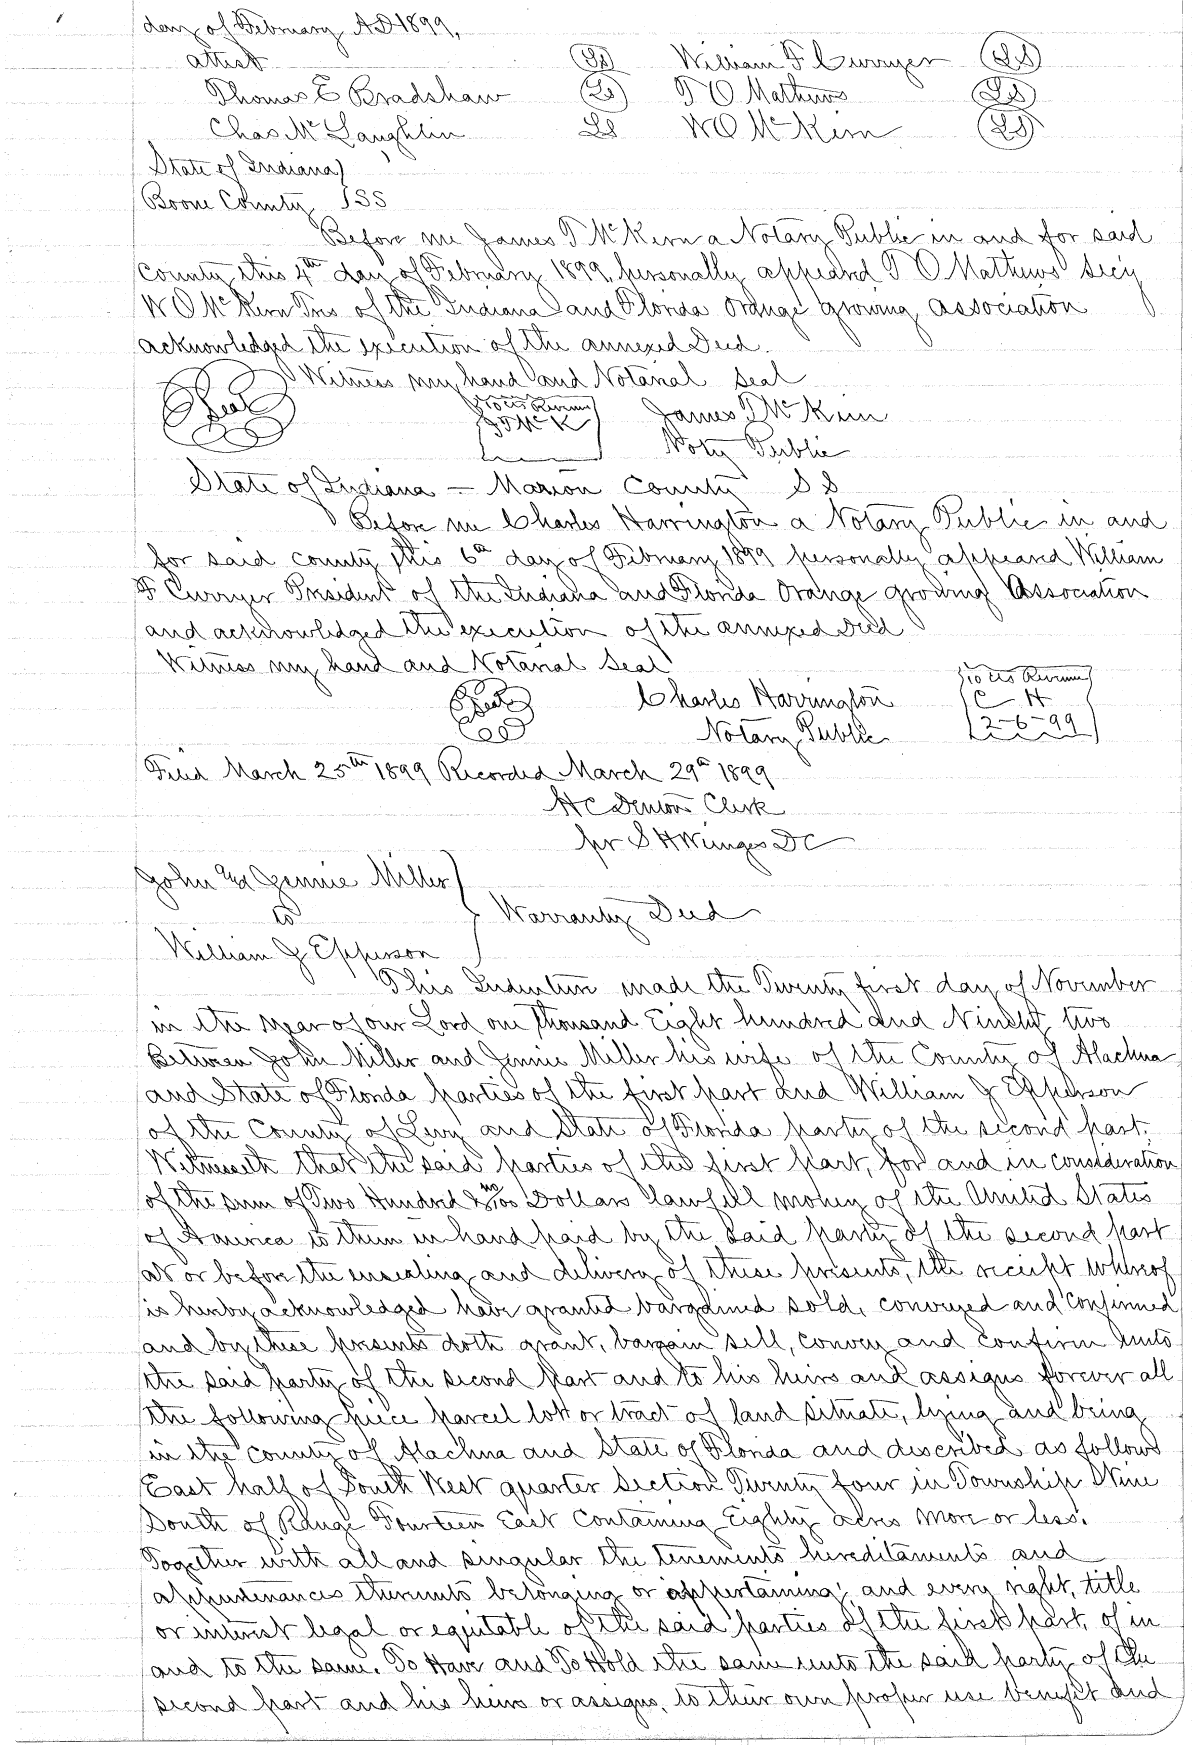 day of February AD 1899,
attest (LS) William F Curryer (LS)
Thomas E Bradshaw (LS) T O Mathews (LS)
Chas Mc Laughlin LS W O McKern (LS)
State of Indiana)
Boone County )SS
Before me James T McKern a Notary Public in and for said
County this 4th day of February 1899, personally appeared T O Mathews Secy
W O McKern Trs of the Indiana and Florida Orange growing Association
acknowledged the execution of the annexed Deed.
Witness my hand and Notarial Seal
(Seal) 10 cts Revenue James T McKern
J T McK
Noty Public
State of Indiana - Marion County SS
Before me Charles Harrington a Notary Public in and
for said county this 6th day of February 1899 personally appeared William
F Curryer President of the Indiana and Florida Orange growing Association
and acknowledged the execution of the annexed Deed
Witness my hand and Notarial Seal
(Seal) Charles Harrington 10 cts Revenue
C H
Notary Public 2-6-99
Filed March 25th 1899 Recorded March 29th 1899
H C Denton Clerk
pr S H Wienges DC
John and Jennie Miller)
to ) Warranty Deed
William J Epperson
This Indenture made the Twenty first day of November
in the year of our Lord one thousand Eight hundred and Ninety two
Between John Miller and Jennie Miller his wife of the County of Alachua
and State of Florida parties of the first part and William J Epperson
of the County of Levy and State of Florida party of the second part.
Witnesseth that the said parties of the first part, for and in consideration
of the sum of Two Hundred & no/100 Dollars lawfull money of the United States
of America to them in hand paid by the said party of the second part
at or before the ensealing and delivery of these presents, the receipt whereof
is hereby acknowledged have granted bargained sold, conveyed and confirmed
and by these presents doth grant, bargain sell, convey and confirm unto
the said party of the second part and to his heirs and assigns forever all
the following piece parcel lot or tract of land situate, lying and being
in the county of Alachua and State of Florida and described as follows
East half of South West quarter Section Twenty four in Township Nine
South of Range Fourteen East Containing Eighty acres more or less.
Together with all and singular the tenements hereditaments and
appurtenances thereunto belonging or appertaining, and every right, title
or interest legal or equitable of the said parties of the first part, of in
and to the same. To Have and To Hold the same unto the said party of the
second part and his heirs or assigns, to their own proper use benefit and